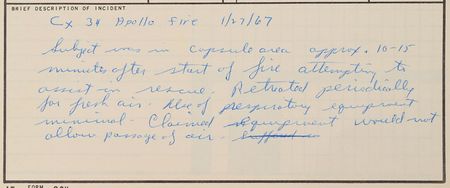 BRIEF DESCRIPTION OF INCIDENT
Cx 34 Apollo Fire 1/27/67
Subject was in capsule area approx. 10-15
minutes after start of fire attempting to
assist in rescue. Retreated periodically
for fresh air. Use of respiratory equipment
minimal. Claimed equipment would not
allow passage of air.
FORM